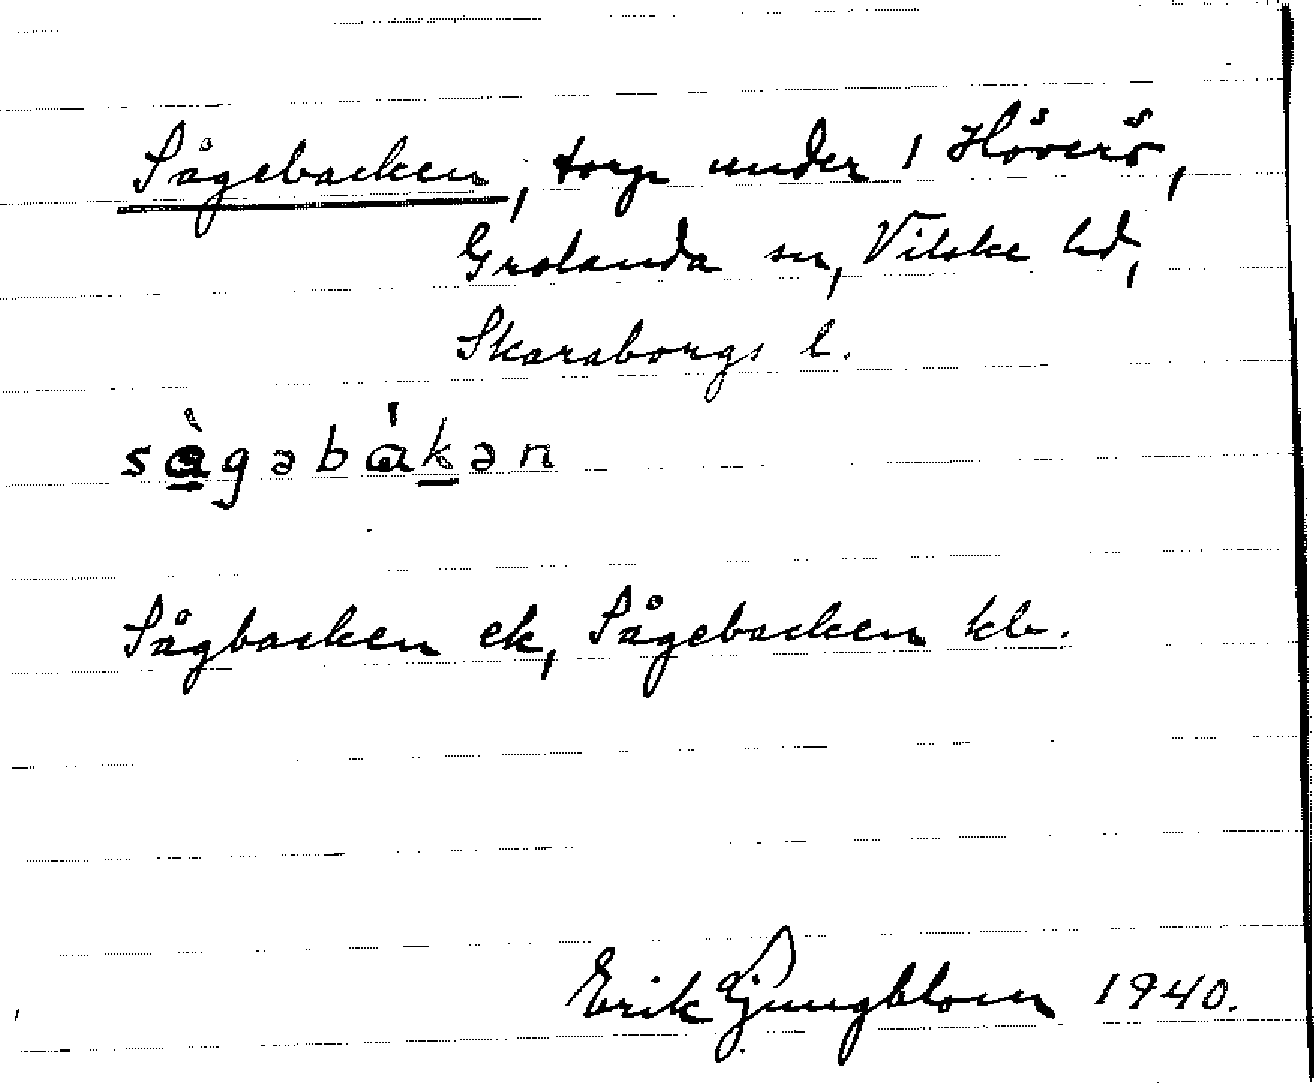 Sågebacken, torp under 1 Höverö,
Grolanda sn, Vilske hd,
Skaraborgs l.
så̀gəbákən
Sågbacken ek, Sågebacken kb.
Erik Ljungblom 1940.